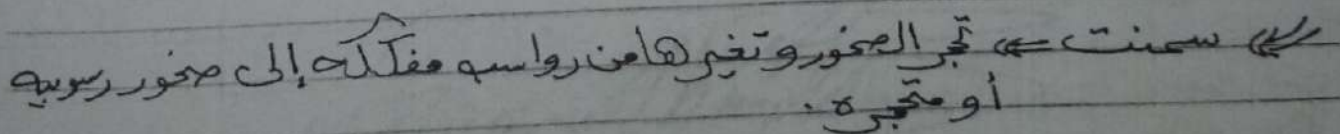 سمنت ⇐ تحجر الصخور وتغيرها من رواسب مفككه إلى صخور رسوبيه
أو متحجره.